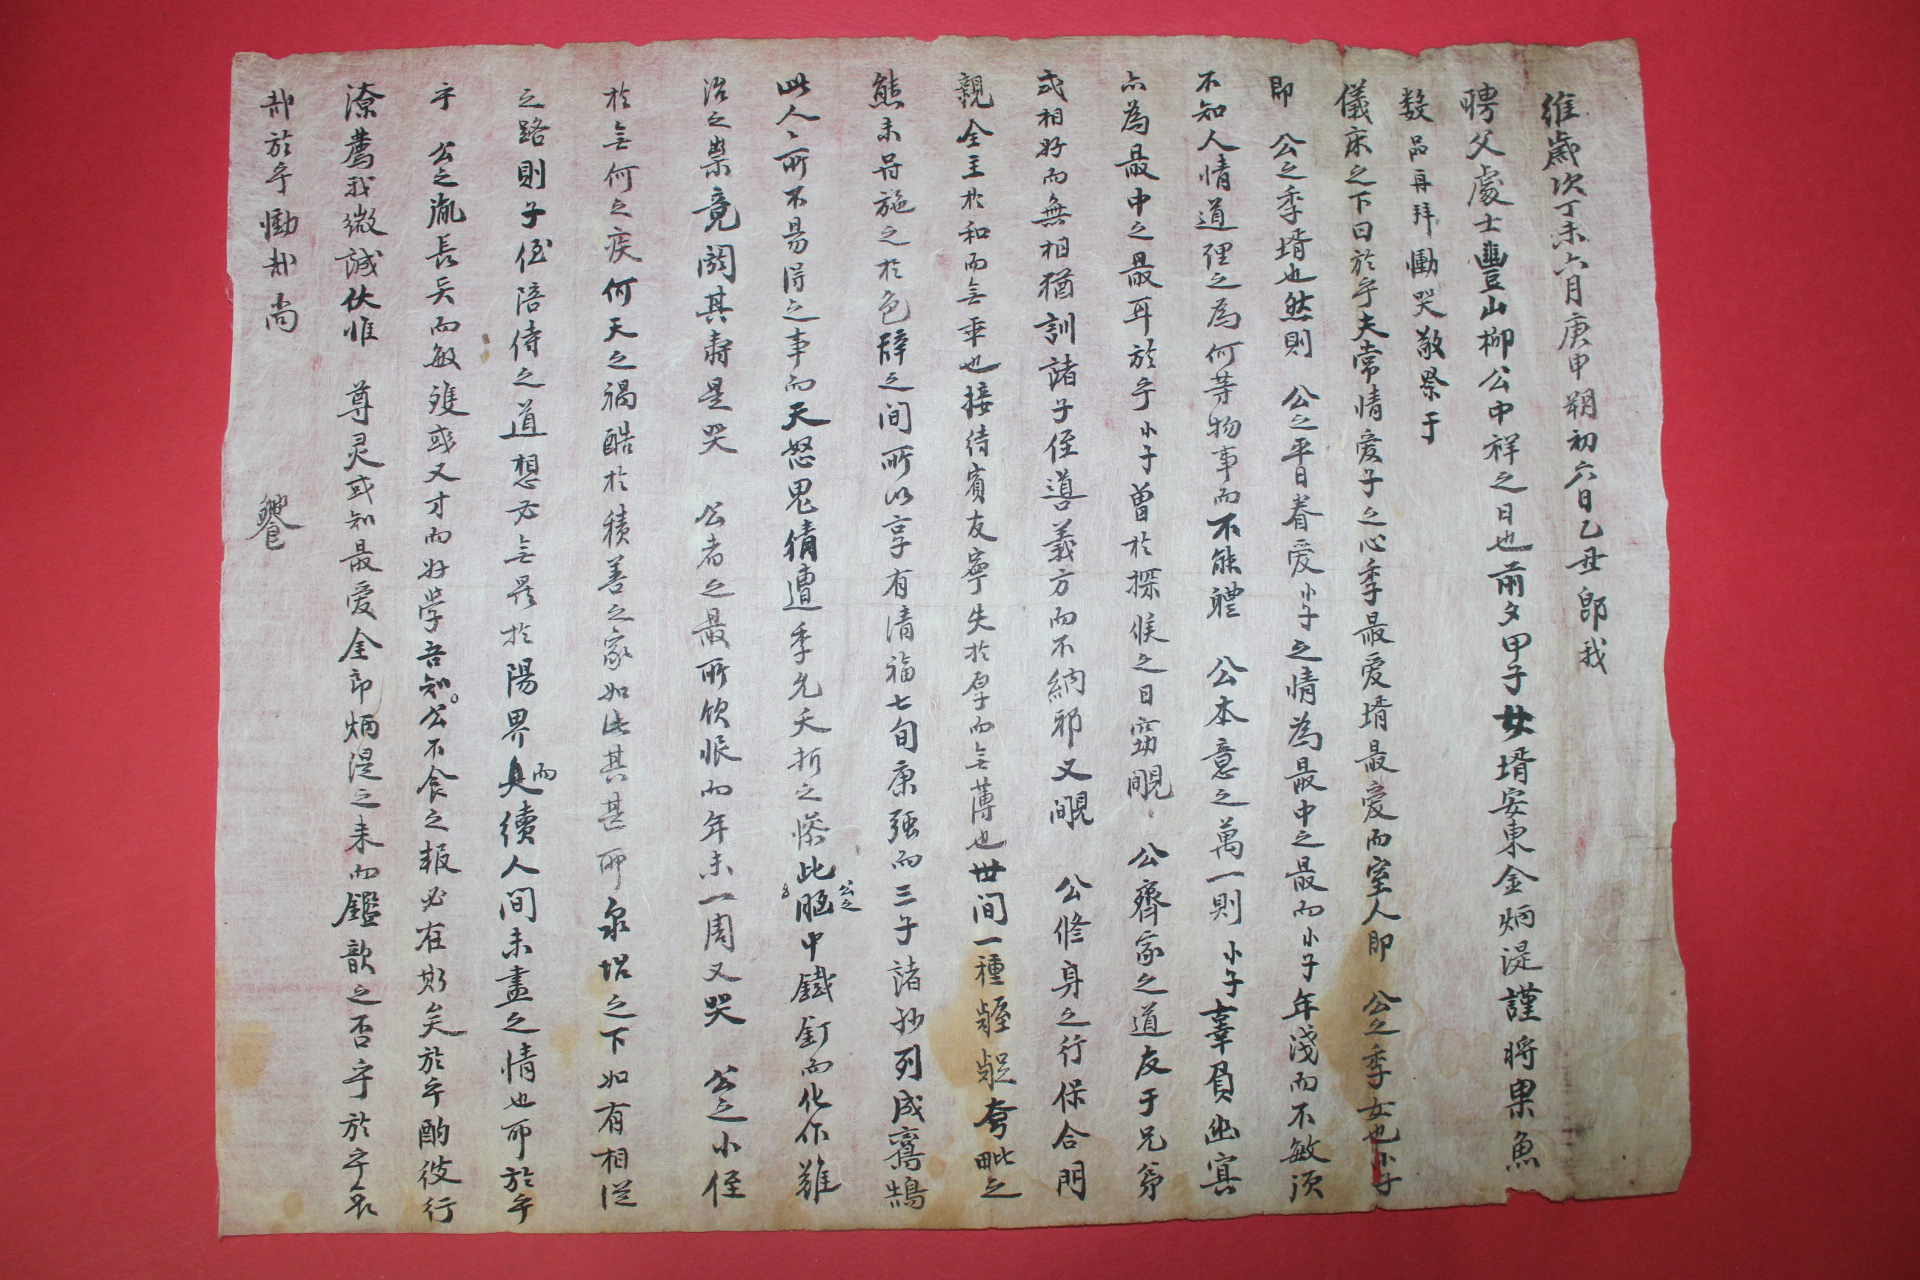 維歲次丁未六月庚申朔初六日乙丑卽我
聘父處士豊山柳公中祥之日也前夕甲子女壻安東金炳湜謹將果魚
數品再拜慟哭敬祭于
儀床之下曰於乎夫常情爱子之心季最爱壻最爱而室人卽 公之季女也小子
卽 公之季壻也然則 公之平日眷爱小子之情為最中之最而小子年淺而不敏須
不知人情道理之為何等物事而不能軆 公本意之萬一則小子辜負幽冥
亦為最中之最耳於乎小子曽於探候之日窃覸 公齊家之道友于兄弟
式相好而無相猶訓諸子侄導義方而不納邪又覸 公修身之行保合門
親全主於和而无乖也接待賓友寧失於厚而无薄也世间一種齷齪夸毗之
熊未㝵施之於色辞之间所以享有清福七旬康强而三子諸孙列成鸞鵠
此人人所不易得之事而天怒鬼猜遭季允夭折之慘此公之腦中鐵釘而化作難
治之祟竟閼其壽是哭 公者之最所飲恨而年未一周又哭 公之小侄
於无何之疾何天之禍酷於積善之家如此其甚耶泉坮之下如有相從
之路則子侄陪侍之道想必无異於陽界而續人间未盡之情也耶於乎
乎 公之胤長矣而敏雖或又才而好学吾知公不食之報必在斯矣於乎酌彼行
潦薦我微誠伏惟 尊灵或知最爱金郎炳湜之来而鑑歆之否乎於乎哀
哉於乎慟哉尚 饗